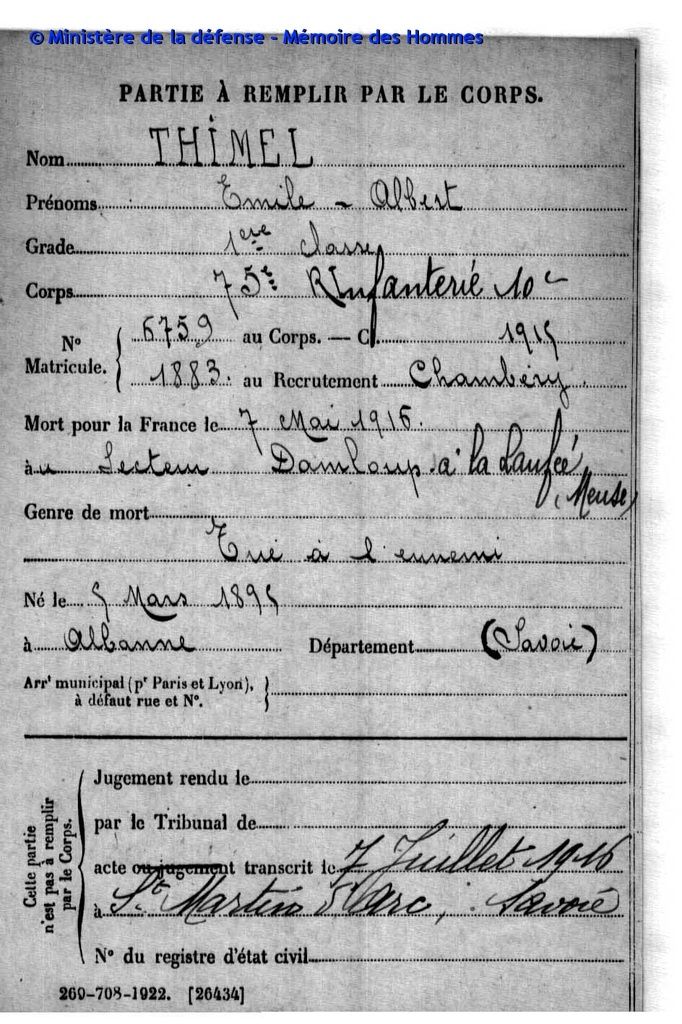 © Ministère de la défense - Mémoire des Hommes
PARTIE À REMPLIR PAR LE CORPS.
Nom THIMEL
Prénoms Emile - Albert
Grade 1ere classe
Corps 75e R Infanterie 10e
No Matricule. { 6759 au Corps. — C. 1915
1883. au Recrutement Chambéry.
Mort pour la France le 7 Mai 1916.
au Secteur Damloup à la Laufée
(Meuse)
Genre de mort
Tué à l'ennemi
Né le 5 Mars 1895
à Albanne Département (Savoie)
Arrt municipal (pr Paris et Lyon),
à défaut rue et No.
Cette partie n'est pas à remplir par le Corps.
Jugement rendu le
par le Tribunal de
acte ou jugement transcrit le 7 Juillet 1916
à St Martin d'Arc, Savoie
No du registre d'état civil
269-708-1922. [26434]